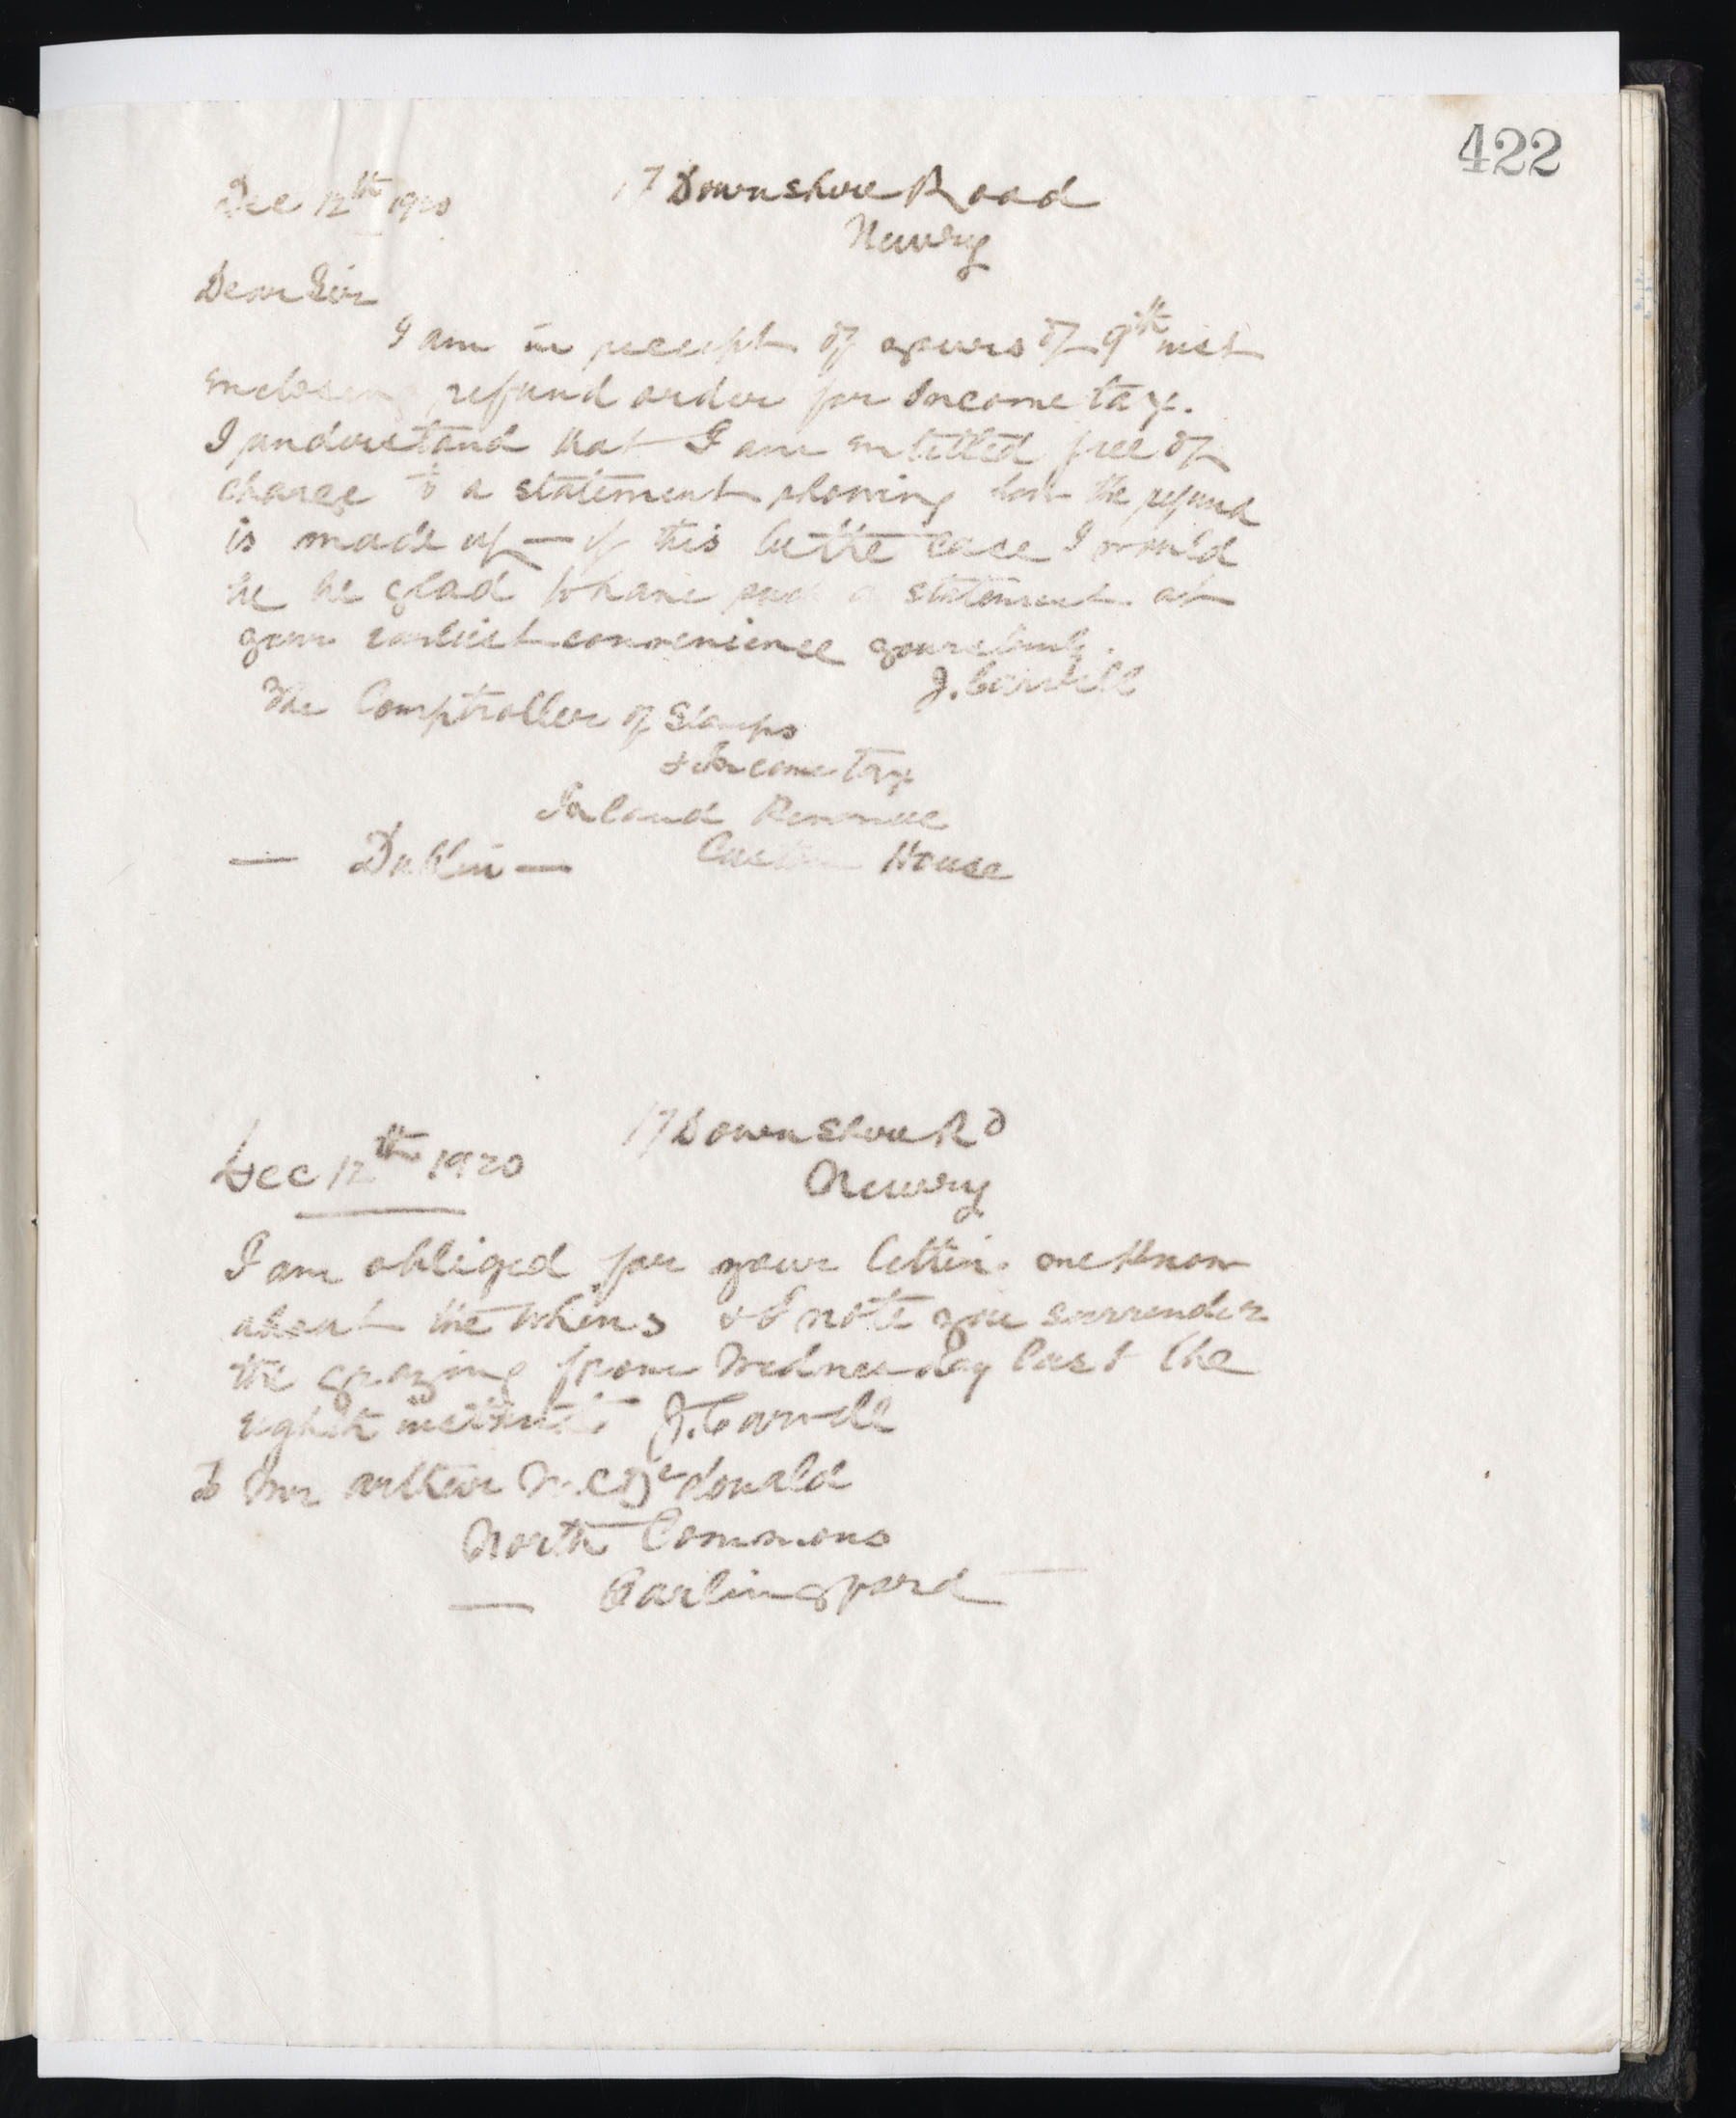 422
Dec 12th 1920
17 Downshire Road
Newry
Dear Sir
I am in receipt of yours of 9th inst
enclosing refund order for Income tax.
I understand that I am entitled free of
charge to a statement showing how the refund
is made up — if this be the case I would
be be glad to have such a statement at
your earliest convenience yours truly.
J. Carvill
The Comptroller of Stamps
& Income Tax
Inland Revenue
Custom House
— Dublin —
17 Downshire Rd
Dec 12th 1920
Newry
I am obliged for your letting me know
about the whins & I note you surrender
the grazing from Wednesday last the
eighth instant J. Carvill
To Mr Arthur McDonald
North Commons
— Carlingford —